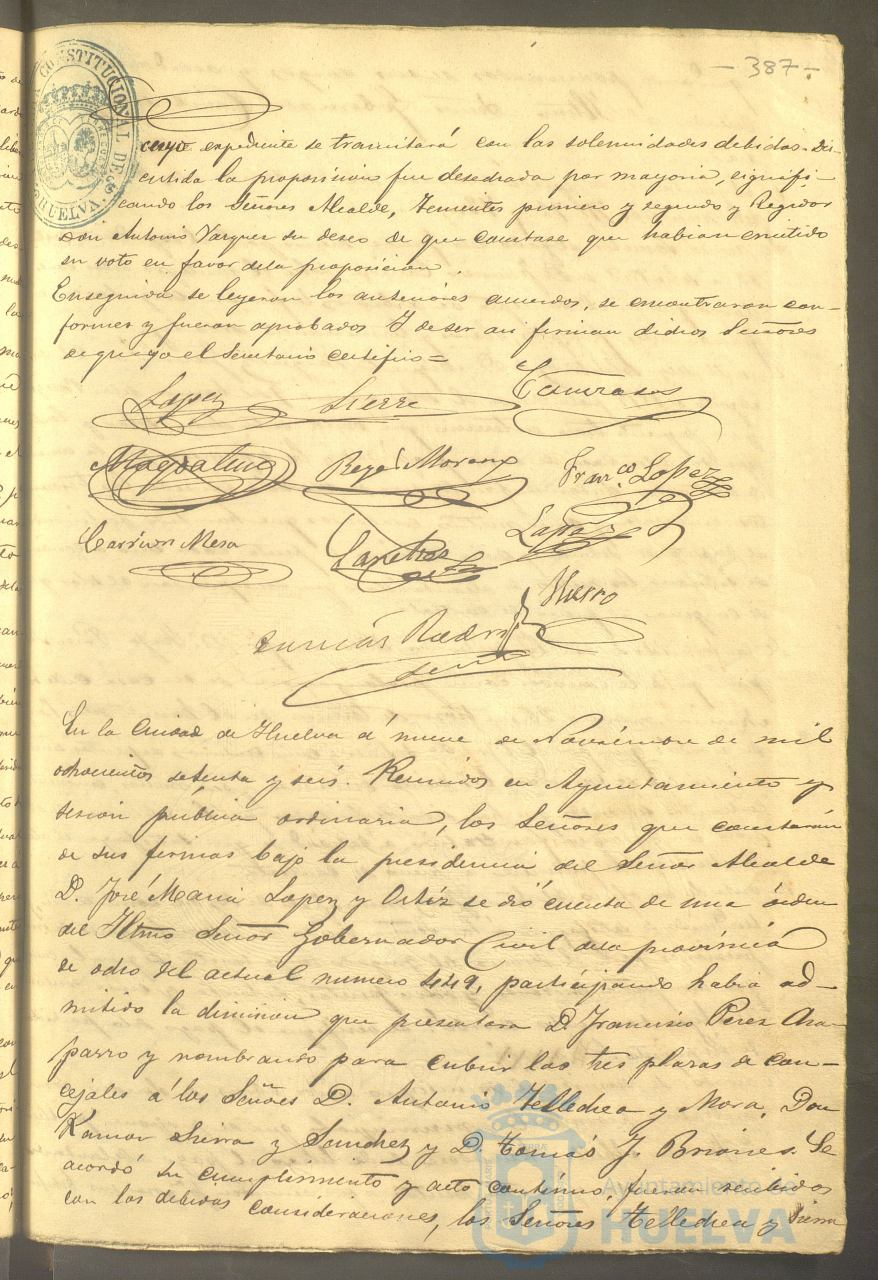 - 387 -
CONSTITUCIONAL DE
HUELVA
cuyo expediente se tramitará con las solemnidades debidas. Dis-
cutida la proposicion fue desechada por mayoria, signifi-
cando los Señores Alcalde, Tenientes primero y segundo y Regidor
Don Antonio Vazquez su deseo de que constase que habian emitido
su voto en favor dela proposicion.
Enseguida se leyeron los anteriores acuerdos, se encontraron con-
formes y fueron aprobados Y de ser asi firman dichos Señores
de que yo el Secretario certifico=
Lopez Sierre
Magdalena Rey Moreno Franco. Lopez
Carrion Mesa Lopez
Hierro
En la Ciudad de Huelva á nueve de Noviembre de mil
ochocientos setenta y seis. Reunidos en Ayuntamiento y
sesion pública ordinaria, los Señores que constarán
de sus firmas bajo la presidencia del Señor Alcalde
D. José Maria Lopez y Ortiz se dió cuenta de una órden
del Iltmo Señor Gobernador Civil dela provincia
de ocho del actual numero 449, participando habia ad-
mitido la dimision que presentara D. Francisco Perez
y nombrando para cubrir las tres plazas de con-
cejales á los Señores D. Antonio Telledrea y Mora, Don
Ramon Sierra y Sanchez y D. Tomás J. Briones. Se
acordó su cumplimiento y acto contínuo, fueron recibidos
con las debidas consideraciones, los Señores Telledrea y Sierra
Ayuntamiento de
HUELVA